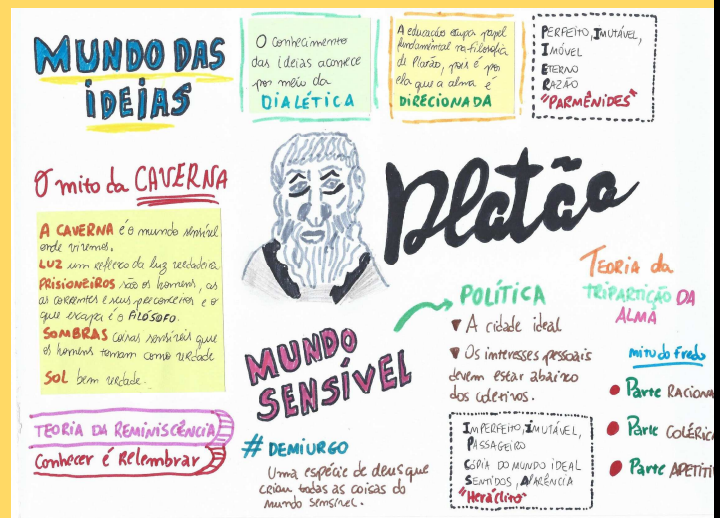 MUNDO DAS
IDEIAS
O conhecimento
das ideias acontece
por meio da
DIALÉTICA
A educação ocupa papel
fundamental na filosofia
de Platão, pois é por
ela que a alma é
DIRECIONADA
PERFEITO, IMUTÁVEL,
IMÓVEL
ETERNO
RAZÃO
"PARMÊNIDES"
O mito da CAVERNA
A CAVERNA é o mundo sensível
onde vivemos.
LUZ um reflexo da luz verdadeira
PRISIONEIROS são os homens, as
as correntes e seus preconceitos e o
que escapa é o FILÓSOFO.
SOMBRAS coisas sensíveis que
os homens tomam como verdade
SOL bem verdade.
TEORIA DA REMINISCÊNCIA
Conhecer é Relembrar
Platão
MUNDO
SENSÍVEL
# DEMIURGO
Uma espécie de deus que
criou todas as coisas do
mundo sensível.
POLÍTICA
A cidade ideal
Os interesses pessoais
devem estar abaixo
dos coletivos.
IMPERFEITO, IMUTÁVEL,
PASSAGEIRO
CÓPIA DO MUNDO IDEAL
SENTIDOS, APARÊNCIA
"Heráclito"
TEORIA da
TRIPARTIÇÃO DA
ALMA
mito do Fredo
Parte RACIONA
Parte COLÉRIC
Parte APETITI